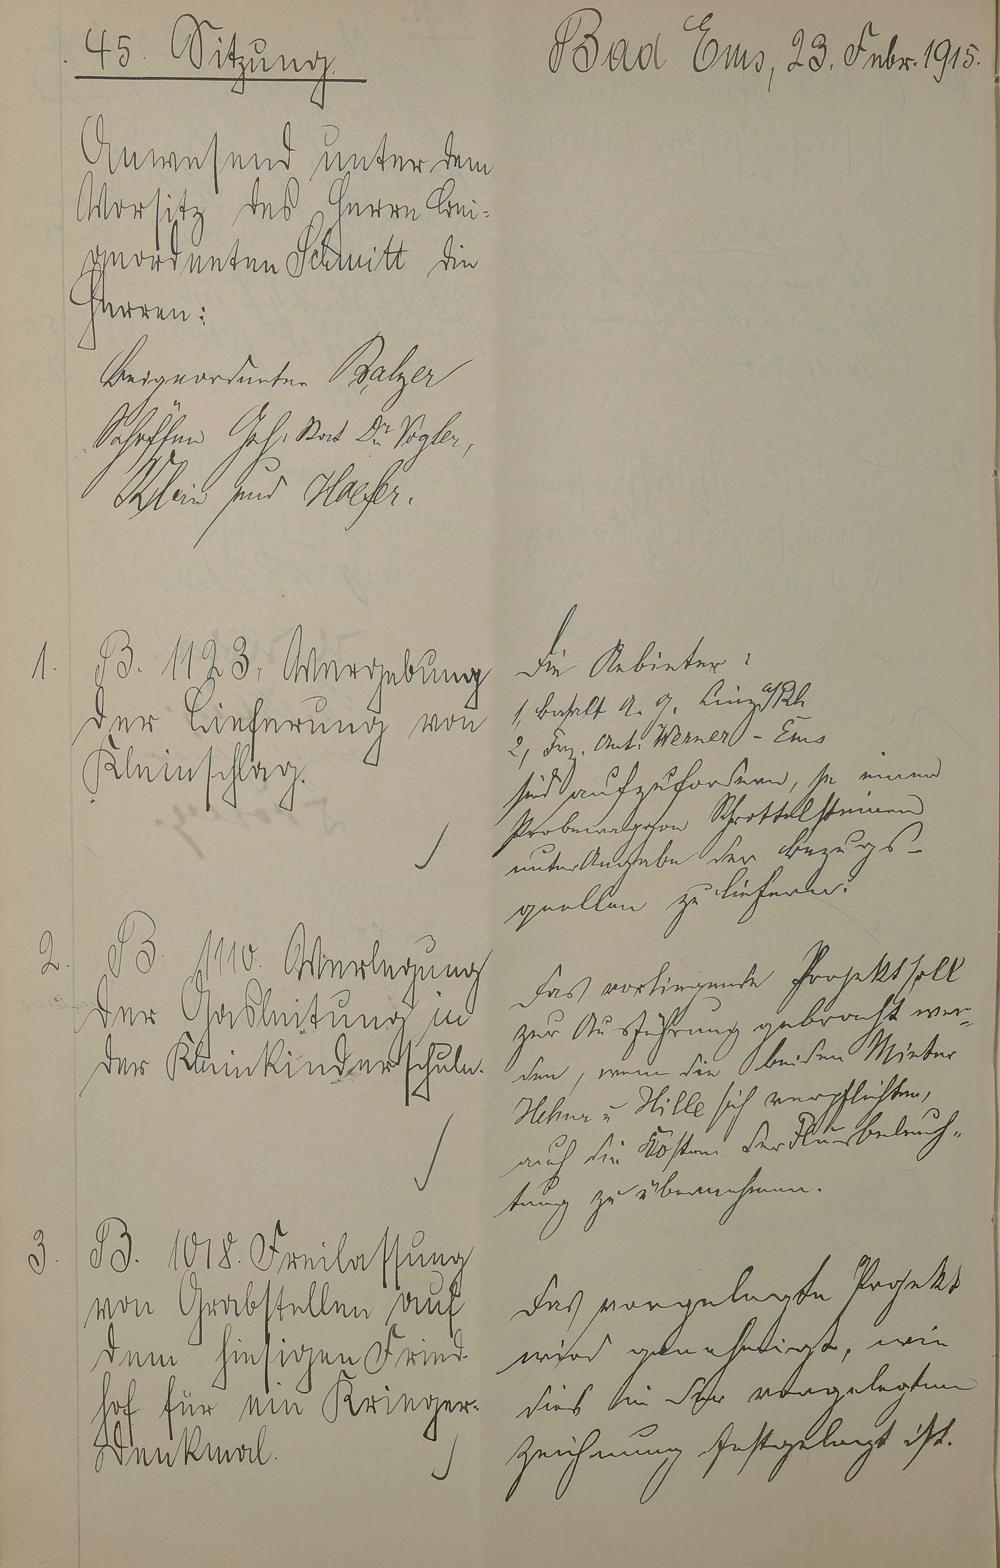 45. Sitzung
Bad Ems, 23. Febr. 1915.
Anwesend unter dem
Vorsitz des Herrn Bei-
geordneten Schmitt die
Herren:
Beigeordneter Balzer
Schöffen Geh. Rat Dr. Vogler,
Klein und Haefer.
1.
B. 1123. Vergebung
der Lieferung von
Kleinschlag.
Die Anbieter:
1, Basalt A. G. Linz a/Rh
2, Frz. Ant. Werner - Ems
sind aufzufordern, je einen
Probewaggon Schottelsteinen
unter Angabe der Bezugs-
quellen zu liefern.
2.
B. 1110. Verlegung
der Gasleitung in
der Kleinkinderschule.
Das vorliegende Projekt soll
zur Ausführung gebracht wer-
den, wenn die beiden Mieter
Hehner u Hille sich verpflichten,
auch die Kosten der Flurbeleuch-
tung zu übernehmen.
3.
B. 1018. Freilassung
von Grabstellen auf
dem hiesigen Fried-
hof für ein Krieger-
denkmal.
Das vorgelegte Projekt
wird genehmigt, wie
dies in der vorgelegten
Zeichnung festgelegt ist.